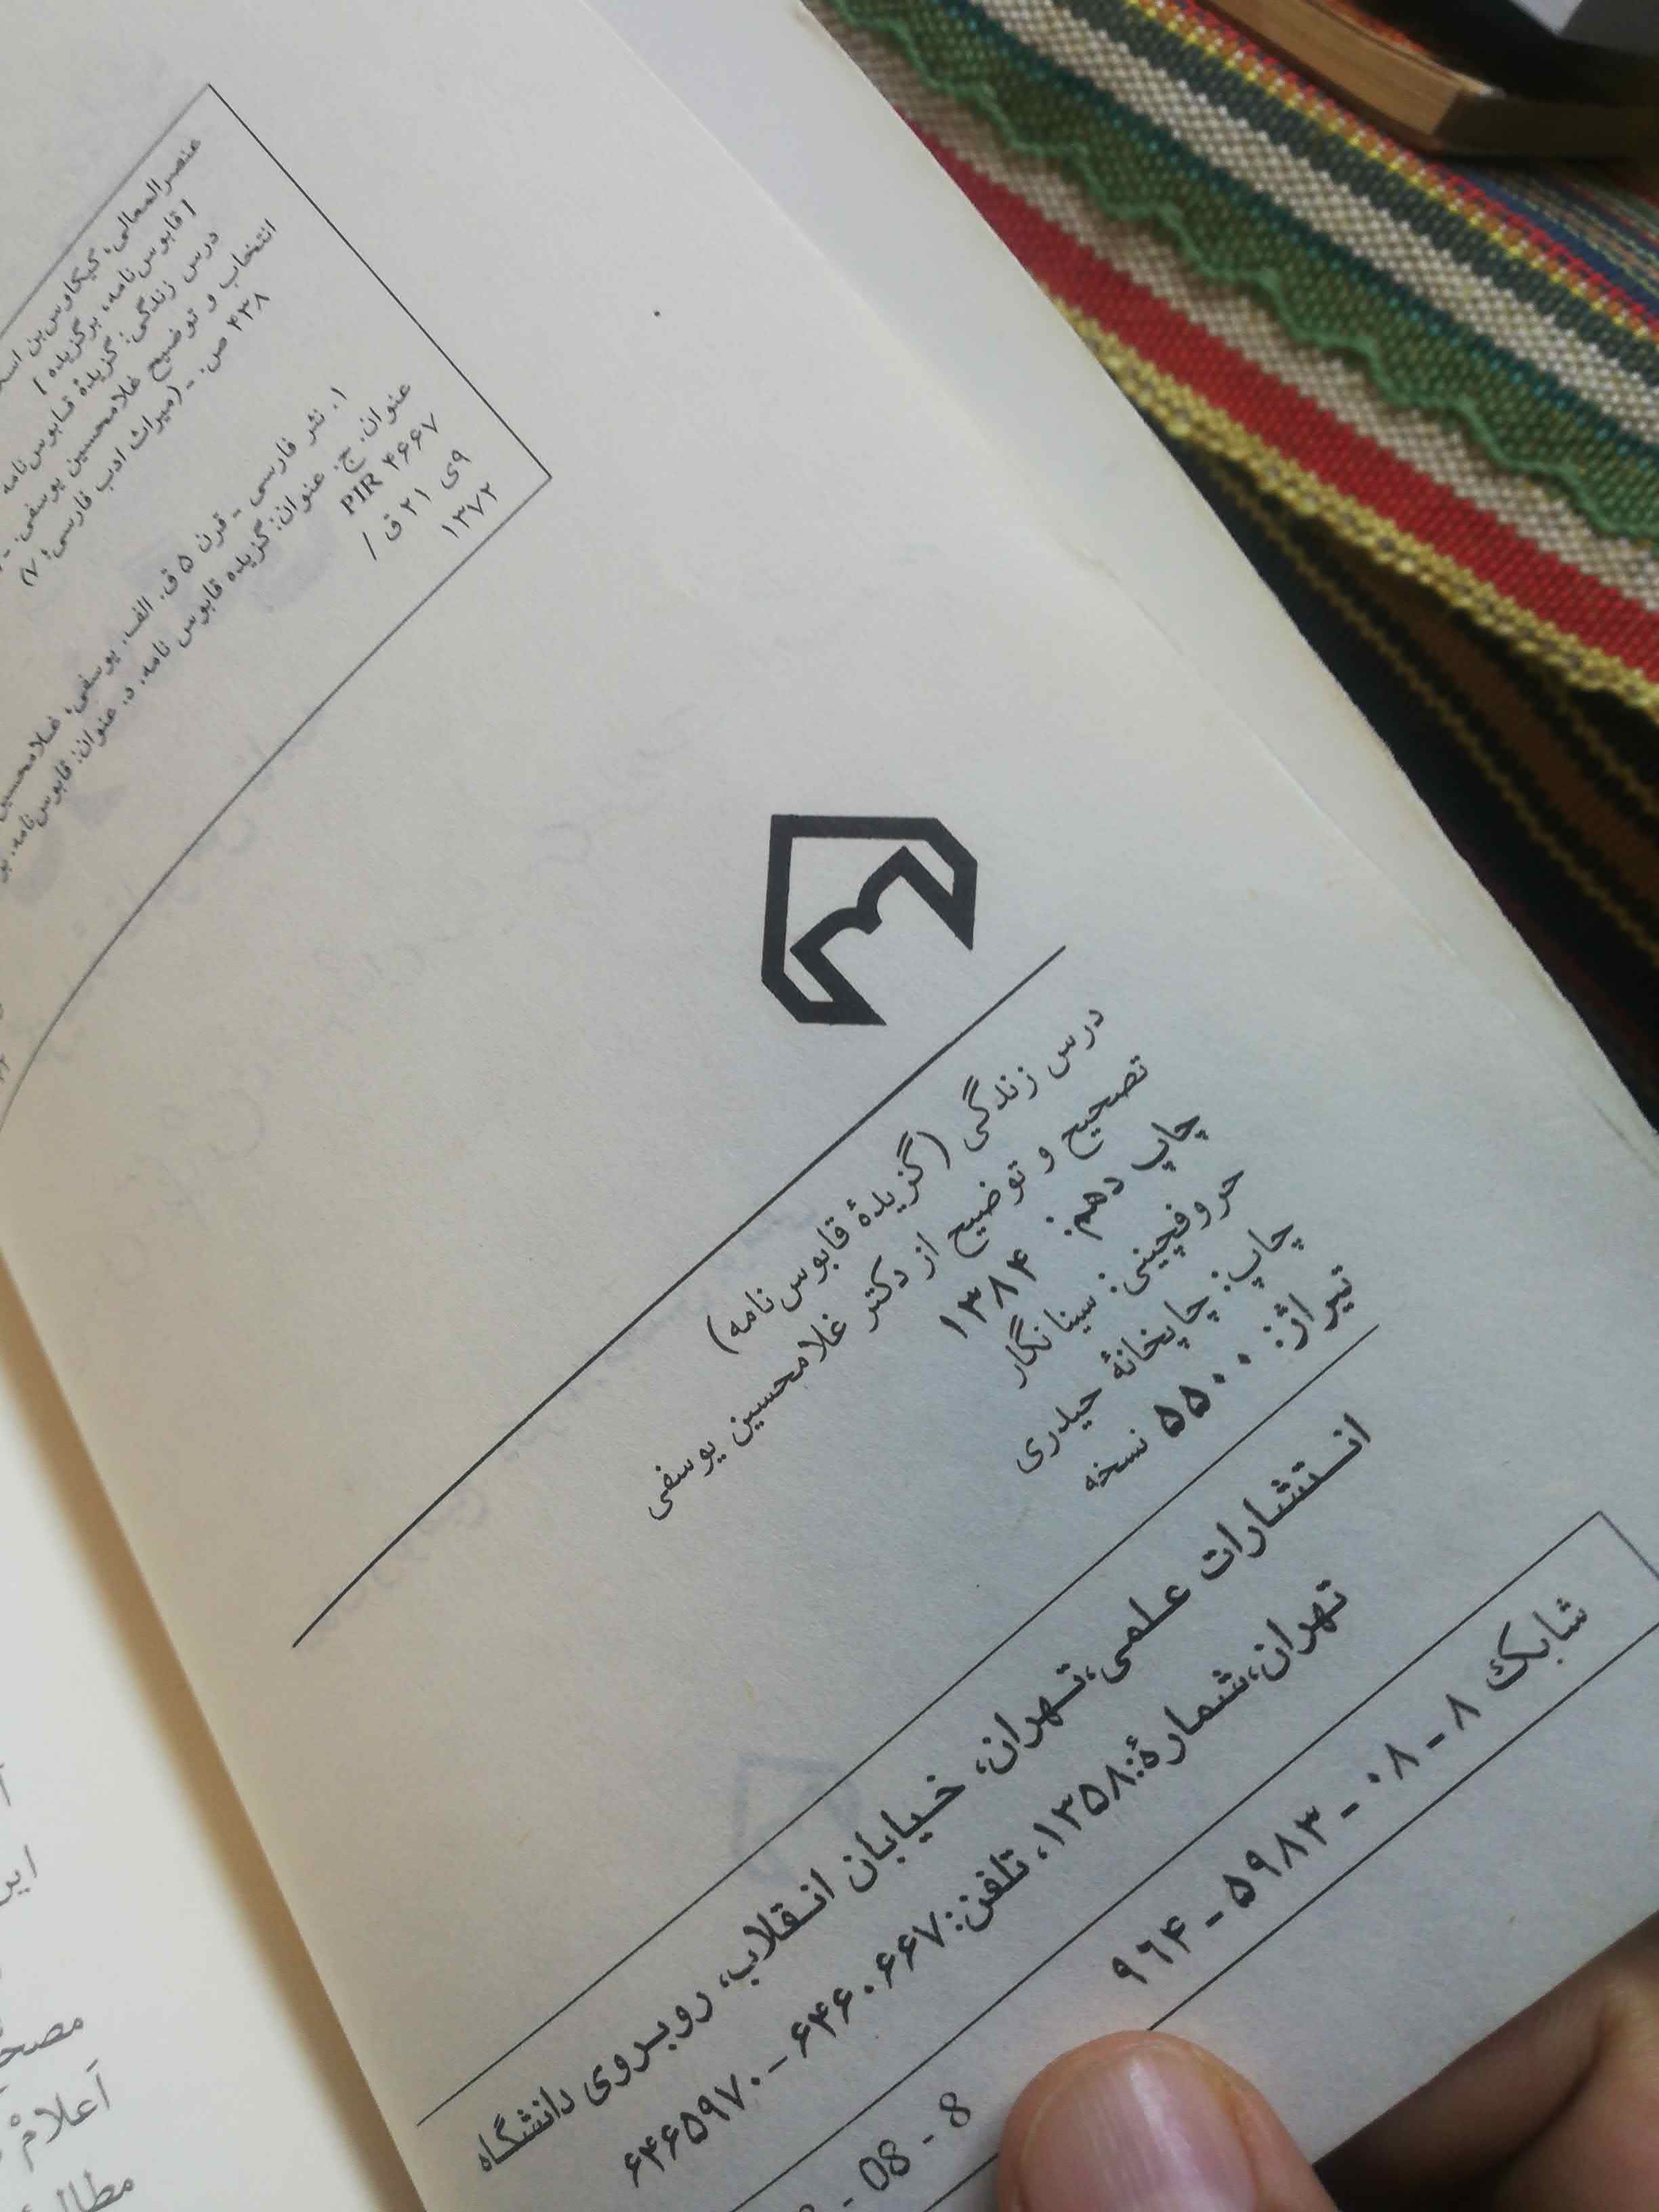 عنصرالمعالی، کیکاوس‌بن
[قابوس‌نامه، برگزیده]
درس زندگی: گزیدهٔ قابوس‌نامه
انتخاب و توضیح غلامحسین یوسفی. -
۴۳۸ ص. - (میراث ادب فارسی؛ ۷)
۱. نثر فارسی - قرن ۵ ق. الف. یوسفی، غلامحسین
عنوان. ج. عنوان: گزیده قابوس نامه. د. عنوان: قابوس‌نامه.
PIR ۴۶۶۷
۹ی ۲۱ ق /
۱۳۷۲
درس زندگی (گزیدهٔ قابوس‌نامه)
تصحیح و توضیح از دکتر غلامحسین یوسفی
چاپ دهم: ۱۳۸۴
حروفچینی: سینانگار
چاپ: چاپخانهٔ حیدری
تیراژ: ۵۵۰۰ نسخه
انتشارات علمی، تهران، خیابان انقلاب، روبروی دانشگاه
تهران، شمارهٔ: ۱۳۵۸، تلفن: ۶۴۶۰۶۶۷ - ۶۴۶۵۹۷۰
شابک ۸ - ۰۸ - ۵۹۸۳ - ۹۶۴
- 08 - 8
مطالب